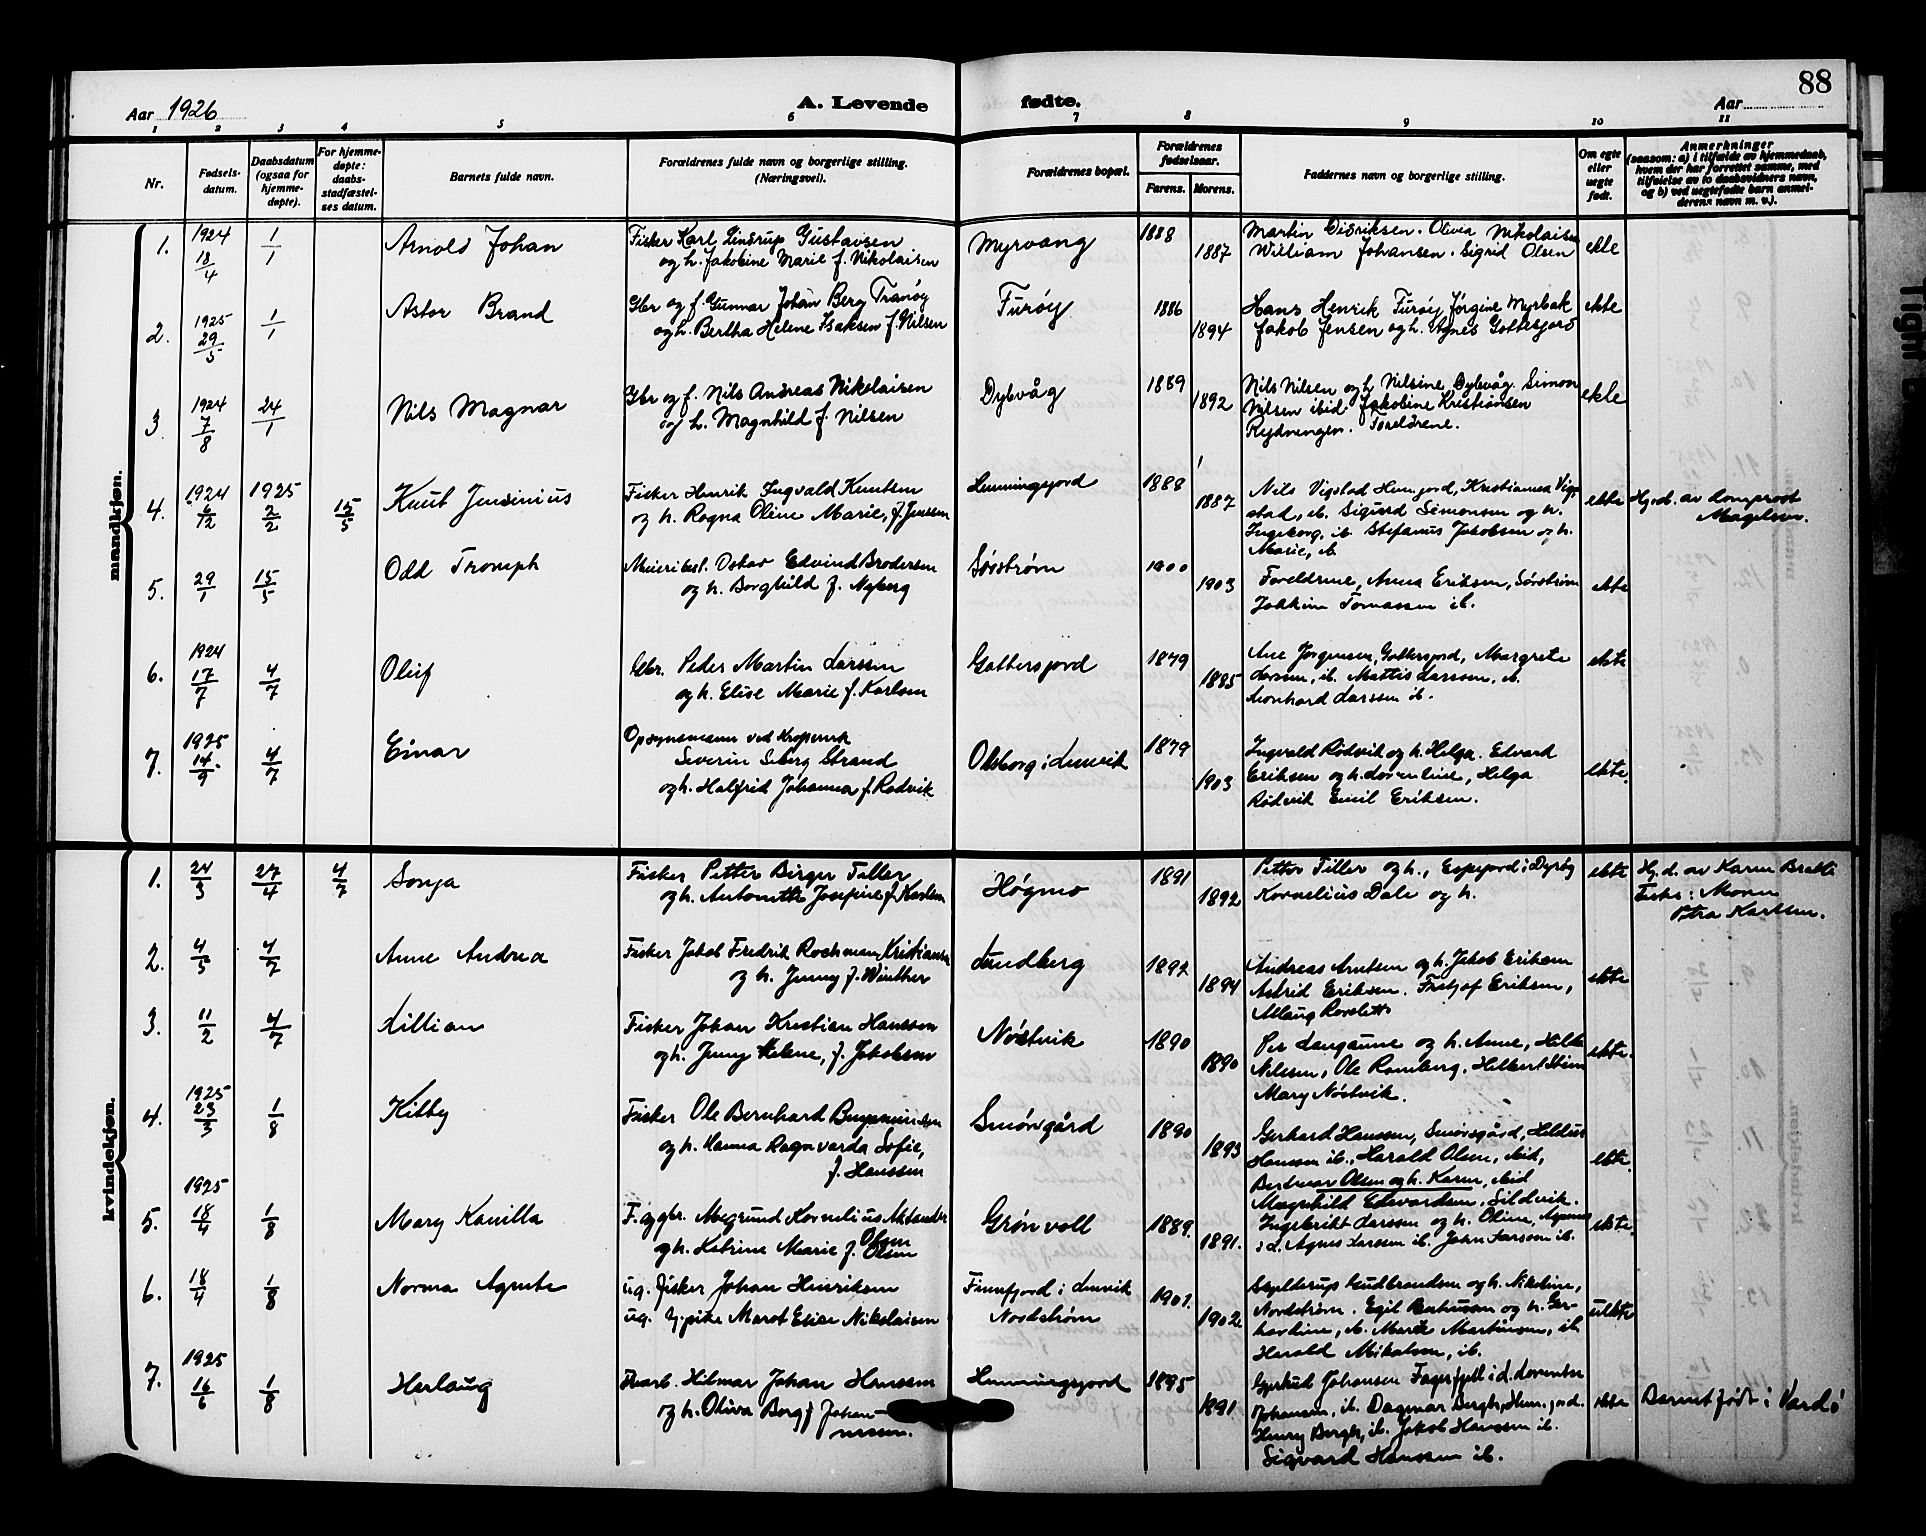 88
Aar 1926
A. Levende
fødte.
Aar
1 2 3 4 5 6 7 8 9 10 11
Nr.
Fødsels-
datum.
Daabsdatum
(ogsaa for
hjemme-
døpte).
For hjemme-
døpte:
daabs-
stadfæstel-
ses datum.
Barnets fulde navn.
Forældrenes fulde navn og borgerlige stilling.
(Næringsvei).
Forældrenes bopæl.
Forældrenes
fødselsaar.
Farens. Morens.
Faddernes navn og borgerlige stilling.
Om egte
eller
uegte
født.
Anmerkninger
(saasom: a) i tilfælde av hjemmedaab,
hvem der har forrettet samme, med
tilføielse av to daabsvidners navn,
og b) ved uegtefødte barn anmel-
derens navn m. v.).
mandkjøn.
1. 1924 18/4 1/1 Arnold Johan
Fisker Karl Lindrup Gustavsen
og h. Jakobine Marie f. Nikolaisen
Myrvang 1888 1887
Martin Didriksen. Olivia Nikolaisen
William Johansen. Sigrid Olsen
ekte
2. 1925 29/5 1/1 Astor Brand
Gbr og f. Gunnar Johan Berg Tranøy
og h. Bertha Helene Isaksen f. Nilsen
Furøy 1886 1894
Hans Henrik Furøy Jørgine Myrbak
Jakob Jensen og h. Agnes Gottesjord
ekte
3. 1924 7/8 24/1 Nils Magnar
Gbr og f. Nils Andreas Nikolaisen
og h. Magnhild f. Nilsen
Dybvåg 1889 1892
Nils Nilsen og h Nilsine Dybvåg. Simon
Nilsen ibid. Jakobine Kristiansen
Rydningen. Foreldrene.
ekte
4. 1924 6/12 1925 2/2 15/5 Knut Jensinius
Fisker Henrik Ingvald Knutsen
og h. Ragna Oline Marie, f. Jensen
Lemmingsjord 1888 1887
Nils Vigstad Hemjord, Kristianna Vig-
stad, ib. Sigurd Simonsen og h.
Ingeborg, ib. Stefanus Jakobsen og h.
Marie, ib
ekte Hj. d. av domprost
Magelssen.
5. 29/1 15/5 Odd Tromph
Meieribest. Oskar Edvind Brodersen
og h. Borghild f. Nyberg
Sørstrøm 1900 1903
Foreldrene, Anna Eriksen, Sørstrøm
Joakim Tomassen ib.
ekte
6. 1924 17/7 4/7 Oluf
Gbr. Peder Martin Larssen
og h. Elise Marie f. Karlsen
Gottersjord 1879 1885
Ane Jørgensen, Gottersjord, Margrete
Larssen, ib. Mattis Larssen, ib.
Leonhard Larssen ib.
ekte
7. 1925 14/9 4/7 Einar
Opsynsmann ved
Severin Seberg Strand
og h. Halfrid Johanna f. Rødvik
Olsborg i Lenvik 1879 1903
Ingvald Rødvik og h. Helga. Edvard
Eriksen og h. Lovenline, Helga
Rødvik Emil Eriksen.
ekte.
kvindekjøn.
1. 24/3 27/4 4/7 Sonja
Fisker Petter Birger Tiller
og h. Antonette Josefine f. Karlsen
Høgmo 1891 1892
Petter Tiller og h., Espejord i Dyrøy
Kornelius Dale og h.
ekte Hj. d. av Karen Bratli
Fisker: Moren
Petra Karlsen.
2. 4/3 4/7 Anne Andrea
Fisker Jakob Fredrik Rochman Kristiansen
og h. Jenny f. Winther
Lundberg 1892 1894
Andreas Arntsen og h. Jakob Eriksen
Astrid Eriksen. Fritjof Eriksen,
Allaug
ekte
3. 11/2 4/7 Lillian
Fisker Johan Kristian Hanssen
og h. Jenny Helene, f. Jakobsen
Nøstvik 1890 1890
Per Langaune og h. Anne, Hilda
Nilssen, Ole Ramberg, Hilbert
Mary Nøstvik.
ekte.
4. 1925 23/3 1/8 Kitty
Fisker Ole Bernhard Benjaminsen
og h. Hanna Ragnvarda Sofie,
f. Hanssen
Smørsgård 1890 1893
Gerhard Hanssen, Smørsgård, Hildur
Hanssen ib., Harald Olsen, ibid,
Bertmar Olsen og h. Karen, ibid
ekte.
5. 1925 18/4 1/8 Mary Kamilla
F. og gbr. Magnund Kornelius Aleksander Olsen
og h. Katrine Marie f. Olsen
Grønvoll 1889. 1891.
Magnhild Edvardsen, Sildvik.
Ingebrikt Larssen og h. Oline,
s. d. Agnes Larssen ib. John Larssen ib.
ekte.
6. 18/4 1/8 Norma Agnete
ug. fisker Johan Henriksen
ug. tj. pike Marot Elise Nikolaisen
Finnfjord i Lenvik
Nordstrøm 1901. 1902
Skylderup Gudbrandsen og h. Nikoline,
Nordstrøm. Egil Bertheussen og h. Ger-
hardine, ib. Marie Martinsen, ib.
Harald Mikalsen, ib.
uekte
7. 1925 16/6 1/8 Herlaug
Fhvarb. Hilmar Johan Hanssen
og h. Oliva Borg f. Johan-
nessen.
Lemmingsjord 1895 1891
Gjertrud Johansen Fagerfjell i d. dorentse
Johansen, ib. Dagmar Bergh, Hem. jord.
Henry Bergh, ib. Jakob Hanssen ib.
Sigvard Hanssen ib.
ekte Barnet født i Vardø